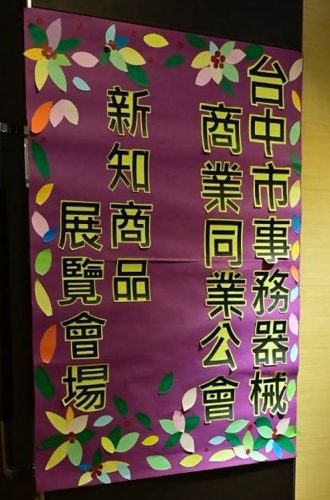 台中市事務器械
商業同業公會
新知商品
展覽會場